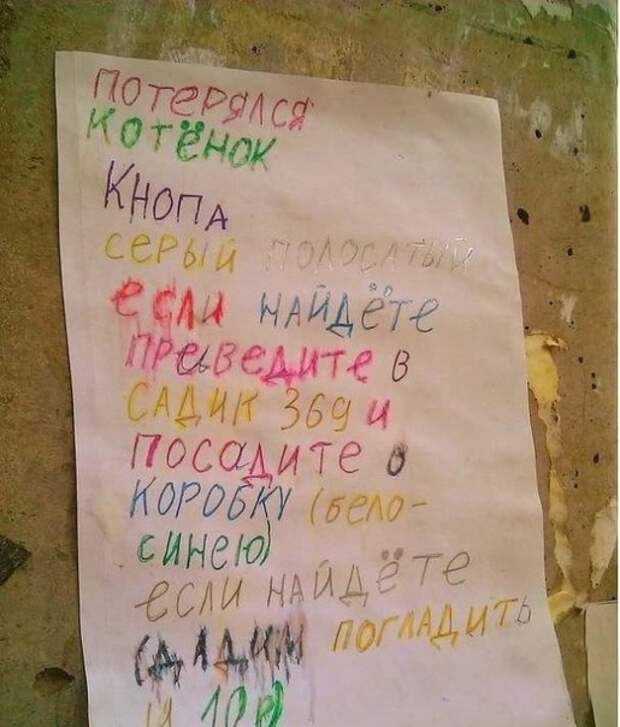 ПОТЕРЯЛСЯ
КОТЁНОК
КНОПА
СЕРЫЙ ПОЛОСАТЫЙ
если НАЙДЁТЕ
ПРеВЕДИТЕ В
САДИК 369 и
ПОСАДИТЕ
КОРОБКУ (бело-
синею)
если НАЙДЁТЕ
ПОГЛАДИТЬ
и 10р